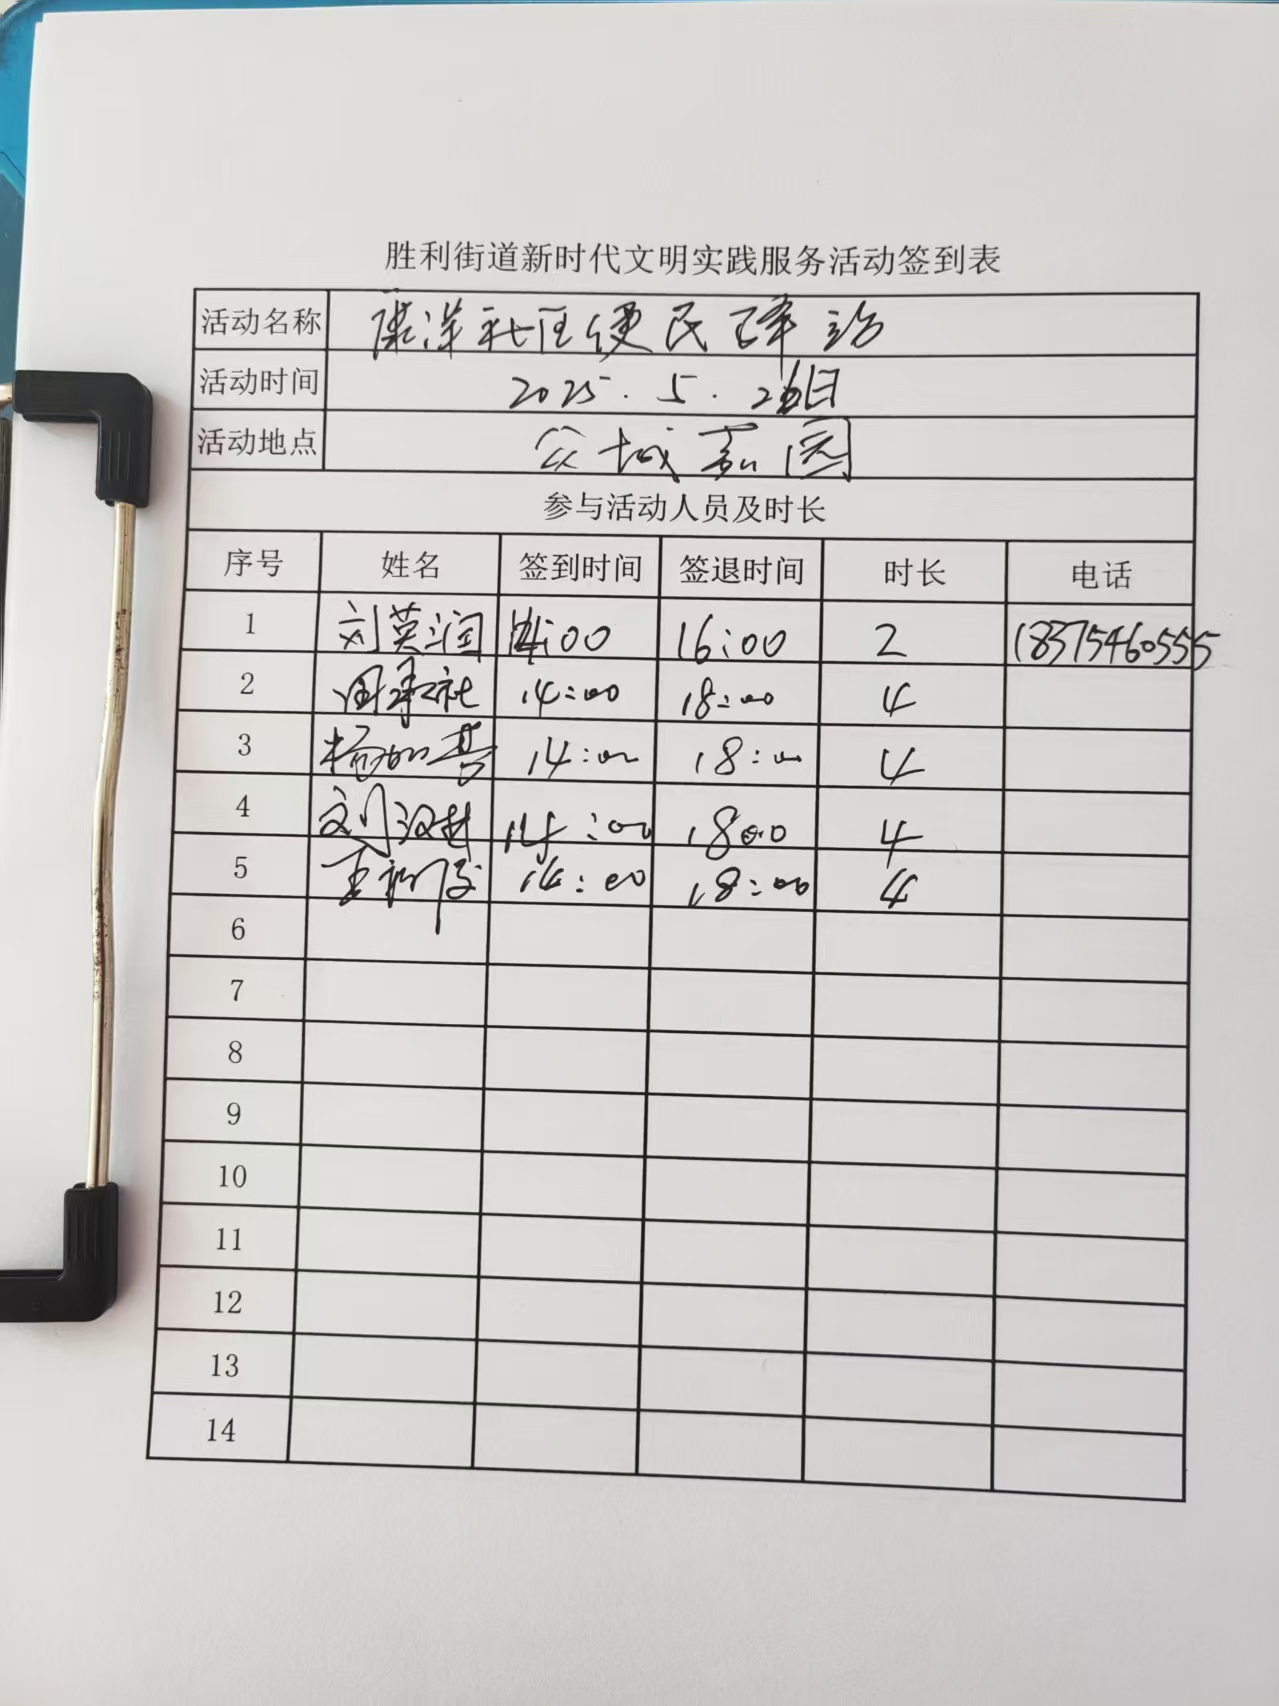 胜利街道新时代文明实践服务活动签到表
活动名称 康洋社区便民驿站
活动时间 2025.5.26日
活动地点 众城嘉园
参与活动人员及时长
序号 姓名 签到时间 签退时间 时长 电话
1 刘英润 14:00 16:00 2 18375460555
2 14:00 18:00 4
3 14:00 18:00 4
4 刘汉 14:00 18:00 4
5 王 14:00 18:00 4
6
7
8
9
10
11
12
13
14